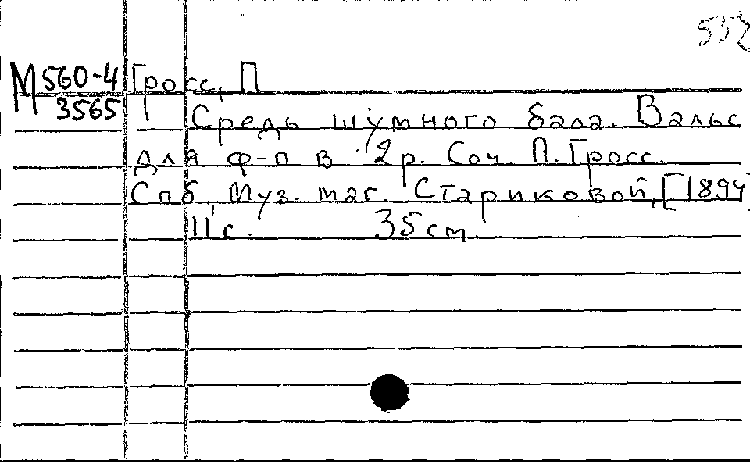 552
М 560-4 Гросс, П
3565
Средь шумного бала. Вальс
для ф-п в 2 р. Соч. П. Гросс.
Спб, Муз. маг. Стариковой, [1894]
11 с. 35 см.